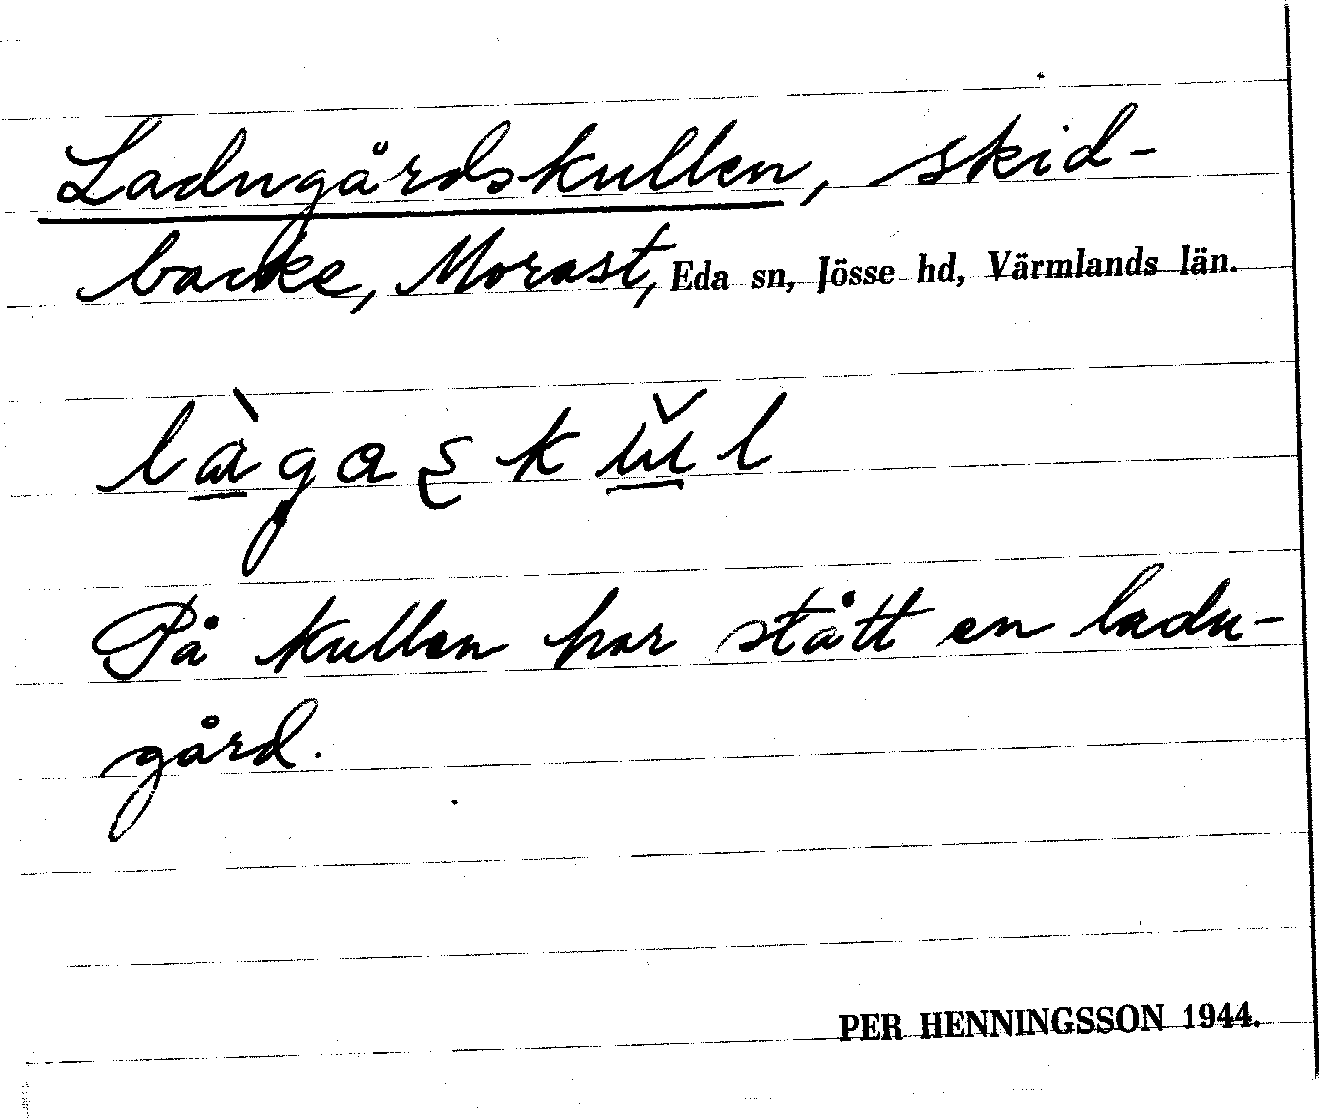 Ladugårdskullen, skid-
backe, Morast, Eda sn, Jösse hd, Värmlands län.
På kullen har stått en ladu-
gård.
PER HENNINGSSON 1944.